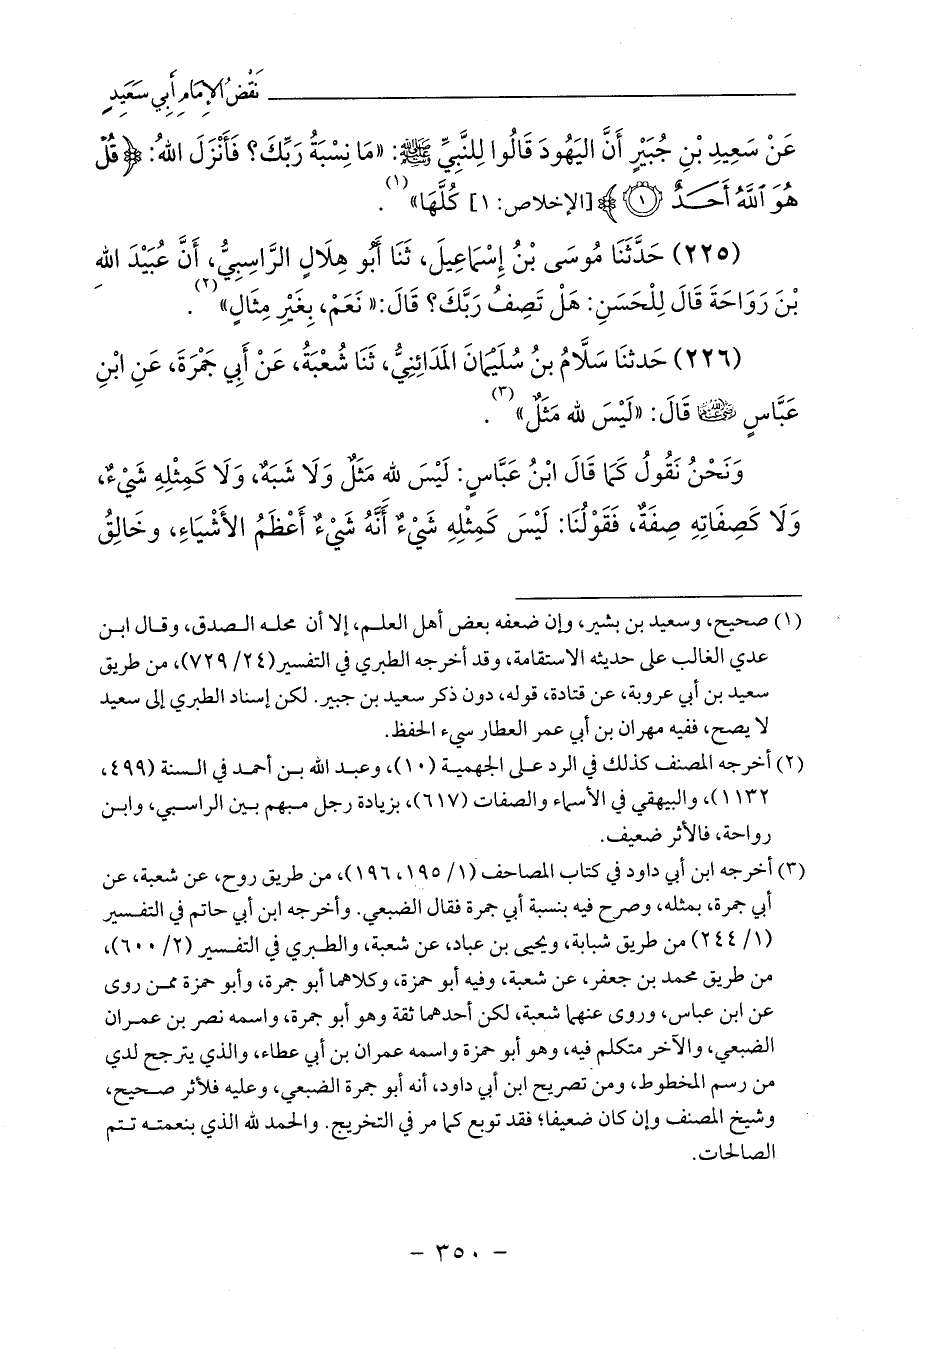 نَقْضُ الإِمَامِ أَبِي سَعِيدٍ
عَنْ سَعِيدِ بْنِ جُبَيْرٍ أَنَّ اليَهُودَ قَالُوا لِلنَّبِيِّ ﷺ: «مَا نِسْبَةُ رَبِّكَ؟ فَأَنْزَلَ اللهُ: ﴿قُلْ
هُوَ ٱللَّهُ أَحَدٌ ۝١﴾ [الإخلاص: ١] كُلَّهَا»(١).
(٢٢٥) حَدَّثَنَا مُوسَى بْنُ إِسْمَاعِيلَ، ثَنَا أَبُو هِلَالٍ الرَّاسِبِيُّ، أَنَّ عُبَيْدَ اللهِ
بْنَ رَوَاحَةَ قَالَ لِلْحَسَنِ: هَلْ تَصِفُ رَبَّكَ؟ قَالَ: «نَعَمْ، بِغَيْرِ مِثَالٍ»(٢).
(٢٢٦) حَدثنَا سَلَّامُ بنُ سُلَيْمَانَ المَدَائِنِيُّ، ثَنَا شُعْبَةُ، عَنْ أَبِي جَمْرَةَ، عَنِ ابْنِ
عَبَّاسٍ ﵁ قَالَ: «لَيْسَ لله مَثَلٌ»(٣).
وَنَحْنُ نَقُولُ كَمَا قَالَ ابْنُ عَبَّاسٍ: لَيْسَ لله مَثَلٌ وَلَا شَبَهٌ، وَلَا كَمِثْلِهِ شَيْءٌ،
وَلَا كَصِفَاتِهِ صِفَةٌ، فَقَوْلُنَا: لَيْسَ كَمِثْلِهِ شَيْءٌ أَنَّهُ شَيْءٌ أَعْظَمُ الأَشْيَاءِ، وخَالِقُ
(١) صحيح، وسعيد بن بشير، وإن ضعفه بعض أهل العلم، إلا أن محله الصدق، وقال ابن
عدي الغالب على حديثه الاستقامة، وقد أخرجه الطبري في التفسير(٢٤/ ٧٢٩)، من طريق
سعيد بن أبي عروبة، عن قتادة، قوله، دون ذكر سعيد بن جبير. لكن إسناد الطبري إلى سعيد
لا يصح، ففيه مهران بن أبي عمر العطار سيء الحفظ.
(٢) أخرجه المصنف كذلك في الرد على الجهمية (١٠)، وعبد الله بن أحمد في السنة (٤٩٩،
١١٣٢)، والبيهقي في الأسماء والصفات (٦١٧)، بزيادة رجل مبهم بين الراسبي، وابن
رواحة، فالأثر ضعيف.
(٣) أخرجه ابن أبي داود في كتاب المصاحف (١/ ١٩٥، ١٩٦)، من طريق روح، عن شعبة، عن
أبي جمرة، بمثله، وصرح فيه بنسبة أبي جمرة فقال الضبعي. وأخرجه ابن أبي حاتم في التفسير
(١/ ٢٤٤) من طريق شبابة، ويحيى بن عباد، عن شعبة، والطبري في التفسير (٢/ ٦٠٠)،
من طريق محمد بن جعفر، عن شعبة، وفيه أبو حمزة، وكلاهما أبو جمرة، وأبو حمزة ممن روى
عن ابن عباس، وروى عنهما شعبة، لكن أحدهما ثقة وهو أبو جمرة، واسمه نصر بن عمران
الضبعي، والآخر متكلم فيه، وهو أبو حمزة واسمه عمران بن أبي عطاء، والذي يترجح لدي
من رسم المخطوط، ومن تصريح ابن أبي داود، أنه أبو جمرة الضبعي، وعليه فلأثر صحيح،
وشيخ المصنف وإن كان ضعيفا؛ فقد توبع كما مر في التخريج. والحمد لله الذي بنعمته تتم
الصالحات.
- ٣٥٠ -